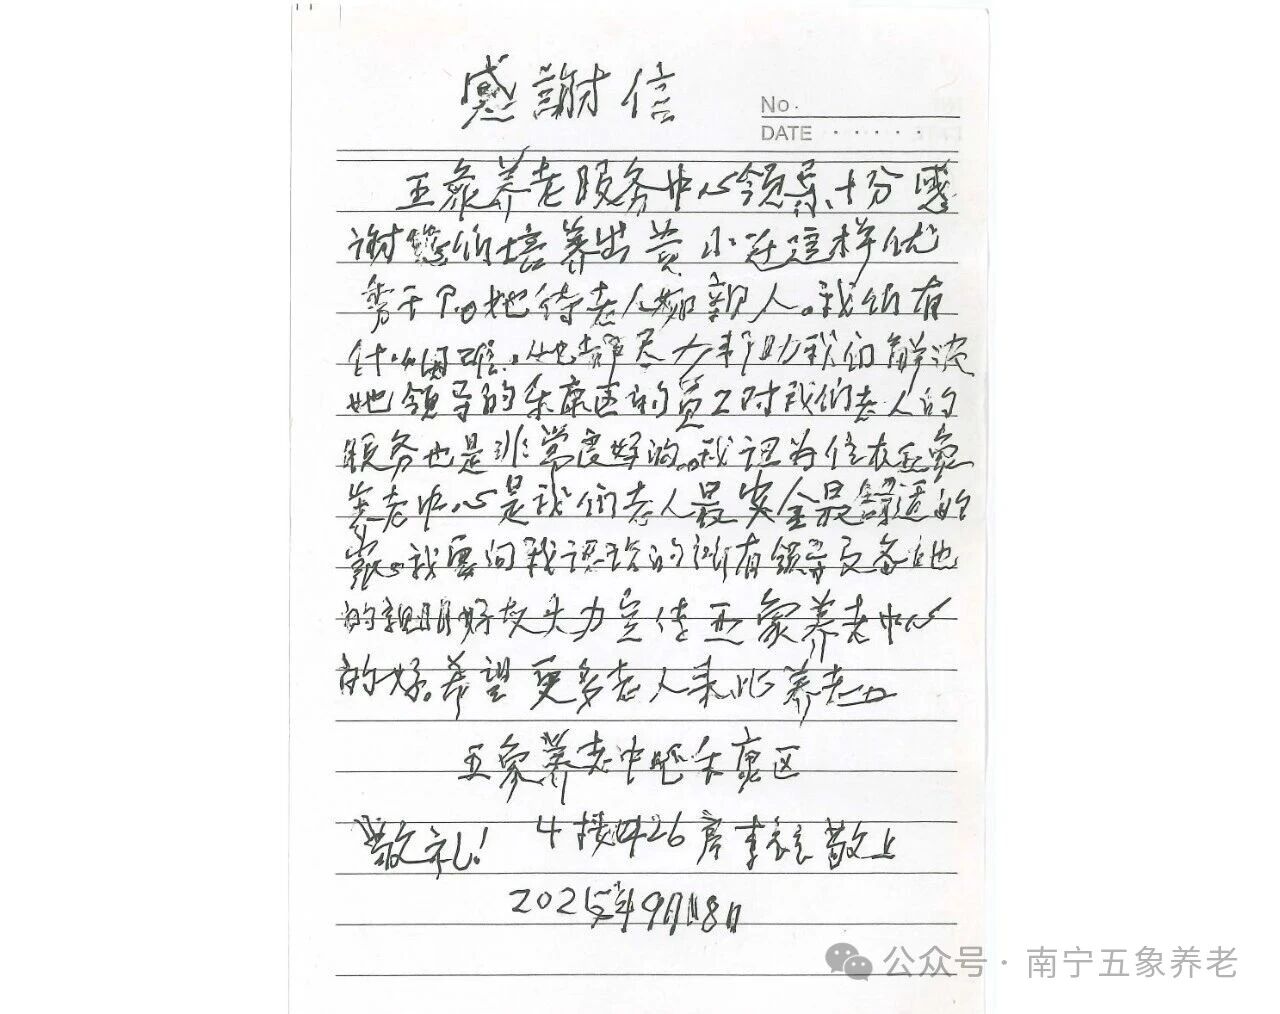 感謝信
No.
DATE
五象养老服务中心领导、十分感
谢您们培养出黄小廷這样优
秀干部。她待老人如親人。我们有
什么困难。她都尽力帮助我们解决
她领导的乐康区的员工对我们老人的
服务也是非常良好的。我认为住在五象
养老中心是我们老人最安全最舒适的
家。我要向我认识的所有领导及各地
的親朋好友大力宣传五象养老中心
的好。希望更多老人来此养老
五象养老中心乐康区
敬礼! 4楼426房李 敬上
2025年9月18日
公众号·南宁五象养老